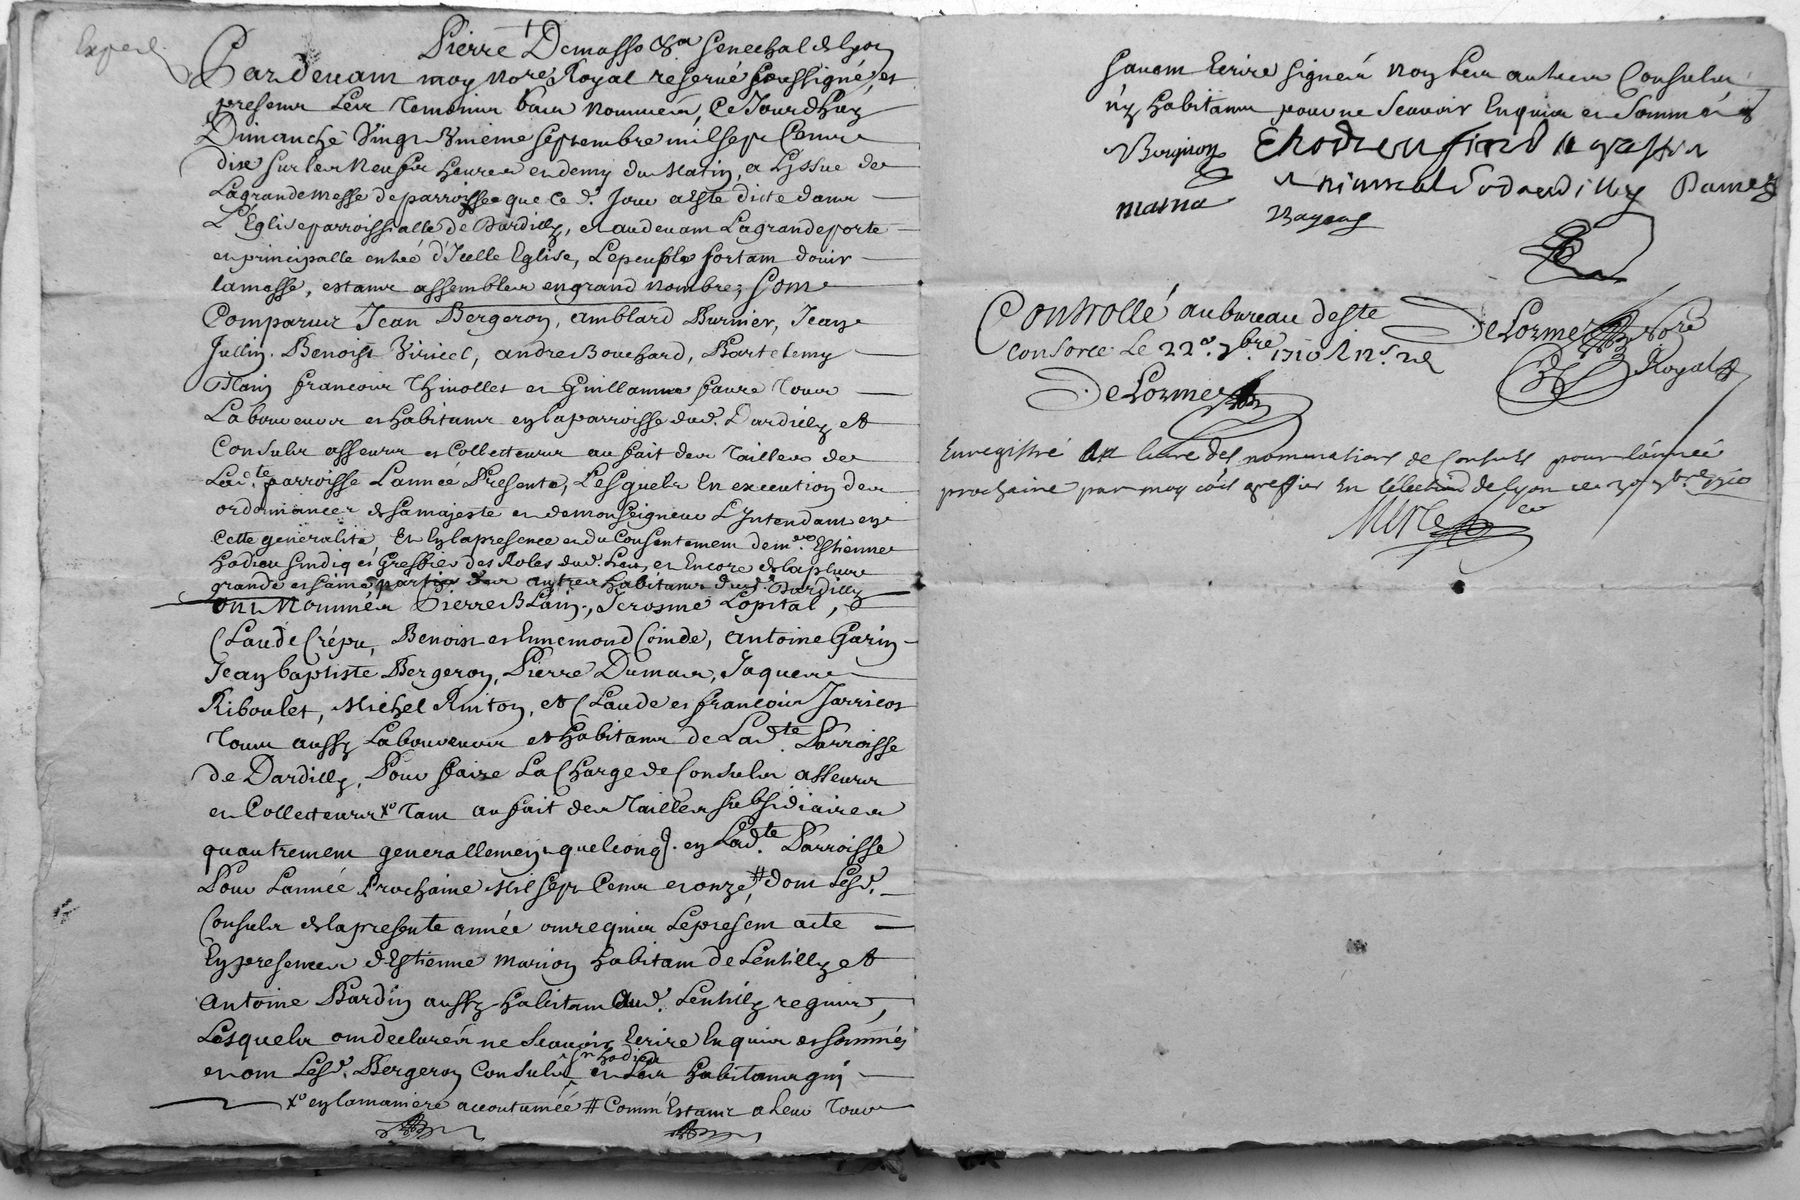 Exped.
Pierre Demasso Senechal de Lyon
Pardevant moy Nore Royal reservé soussigné, et
presens les temoins bas nommés, Ce Jourdhuy
Dimanche Vingt Unieme septembre mil sept Cents
dix sur les Neuf heures en demy du Matin, a Lissue de
La grande messe de parroisse que ce d. Jour a esté dicte dans
L'Eglise parroissialle de Dardilly, et audevant La grande porte
et principalle entrée d'Icelle Eglise, Le peuple sortant d'ouir
la messe, estans assemblés en grand Nombre; sont
Comparus Jean Bergeron, amblard Burnier, Jean
Jullin, Benoist Viricel, andre Bouchard, Bartelemy
Blain francois Thinollet et Guillaume favre Tous
Laboureurs et habitans en la parroisse dud. Dardilly et
Consuls asseurs et Collecteurs au fait des Tailles de
Lad.te parroisse L'année Presente, Lesquels En execution des
ordonnances de sa majesté et de monseigneur L'Intendant en
Cette generalité Et En la presence et du Consentement de me. Estienne
Hodieu sindiq et Greffier des Roles dud. Lieu, et Encore de la plus
grande et saine partie des autres habitans dud. Dardilly
ont Nommés Pierre Blain, Jerosme Lopital,
Claude Crépu, Benoist et Ennemond Coinde, Antoine Garin
Jean baptiste Bergeron, Pierre Dumas, Jaques
Riboulet, Michel Ruiton, et Claude et francois Jarricot
Tous aussy Laboureurs et habitans de Lad.te Parroisse
de Dardilly, Pour faire La Charge de Consuls asseurs
et Collecteurs Xo Tant au fait des Tailles subsidiaires
qu'autrement generallement quelconq. en Lad.te Parroisse
Pour L'année Prochaine Mil sept Cens et onze, # dont Lesd.
Consuls de la presente année ont requis Le present acte
En presence d'Estienne Marion habitant de Lentilly et
Antoine Bardin aussy habitant aud. Lentilly requis,
Lesquels ont declarés ne Scavoir Ecrire Enquis et sommés
et ont Lesd. Bergeron Consuls sr hodieu et Les habitans qui
Xo en la maniere accoutumée # Comm'Estans a Leur Tour
scavent Ecrire signés Non Les autres Consuls
ny habitans pour ne Scavoir Enquis et Sommés
Bergiron Ehodieu
Marna Dumas
Controllé au bureau de Ste
Consorce Le 22e. 7bre 1710
DeLorme
DeLorme Nore
Royal
Enregistré au livre des nominations de Consuls pour l'année
prochaine par moy greffier En l'élection de Lyon ce 30 7bre 1710
Merle